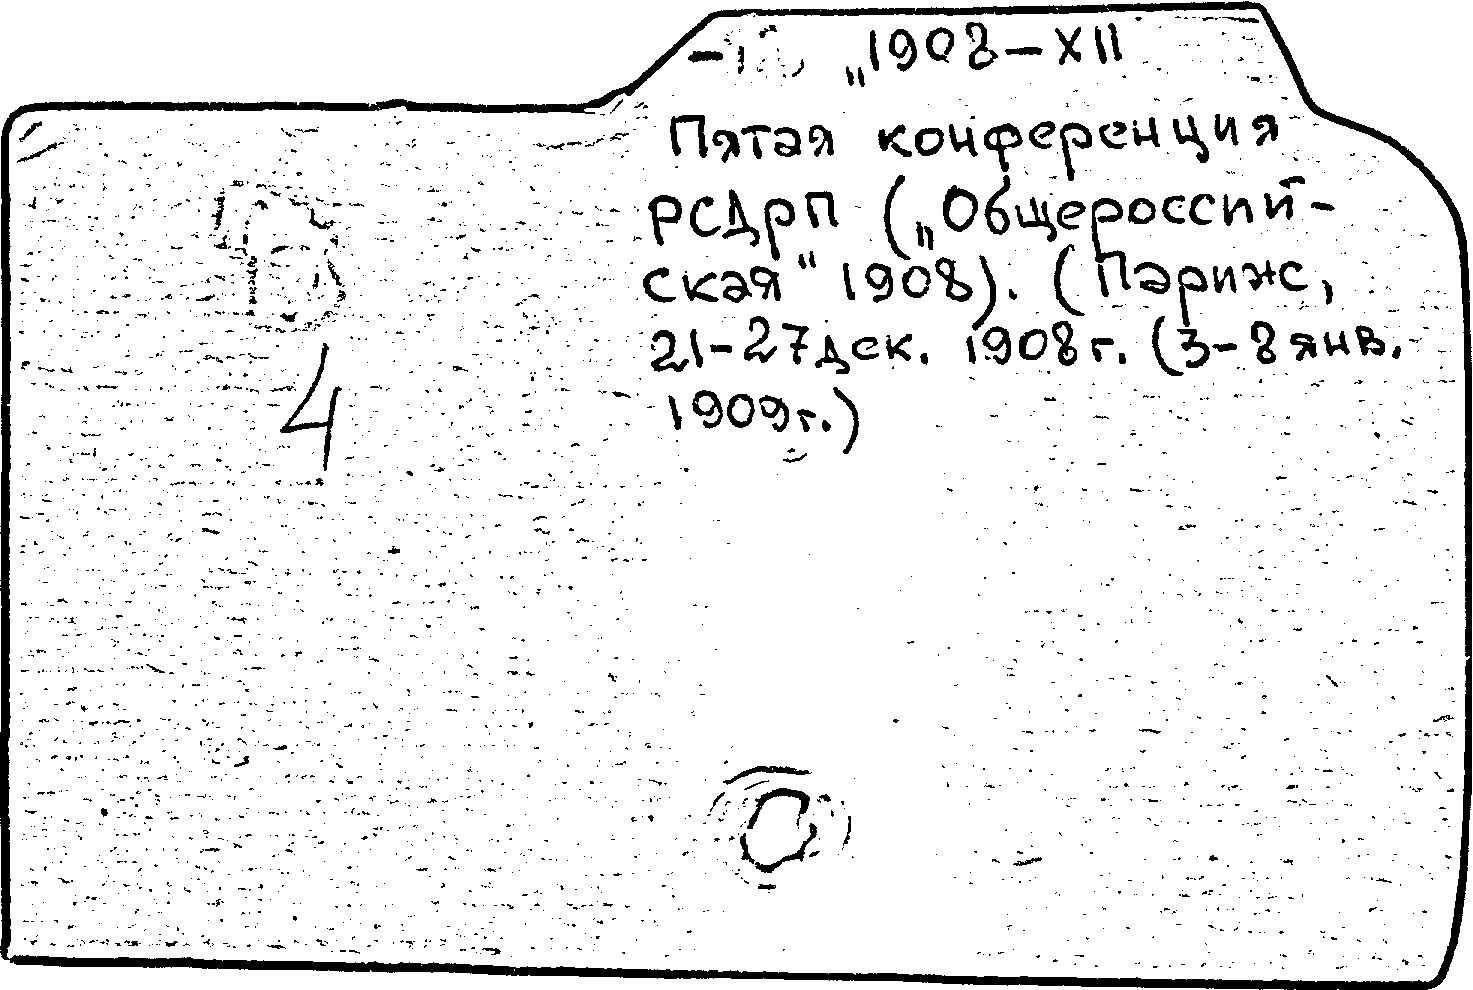 „1908 – XII
Пятая конференция
РСДРП („Общероссий-
ская“ 1908). (Париж,
21-27 дек. 1908 г. (3-8 янв.
1909 г.)
4